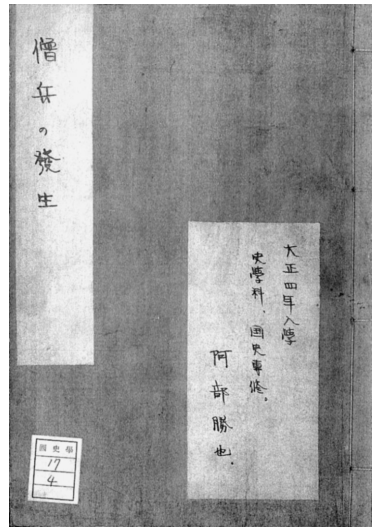 僧兵の發生
大正四年入學
史學科、国史専修。
阿部勝也.
國史學
17
4